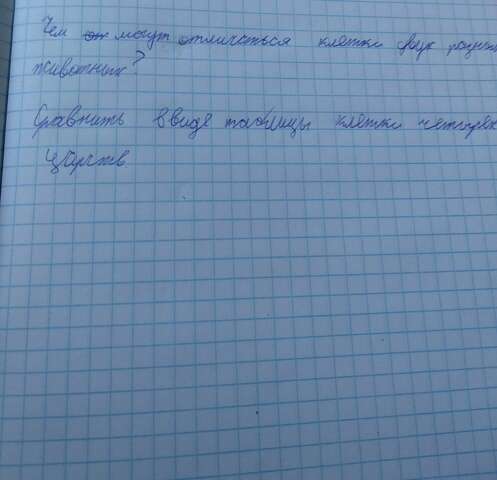 Чем могут отличаться клетки двух разных
животных?
Сравнить в виде таблицы клетки четырех
царств.